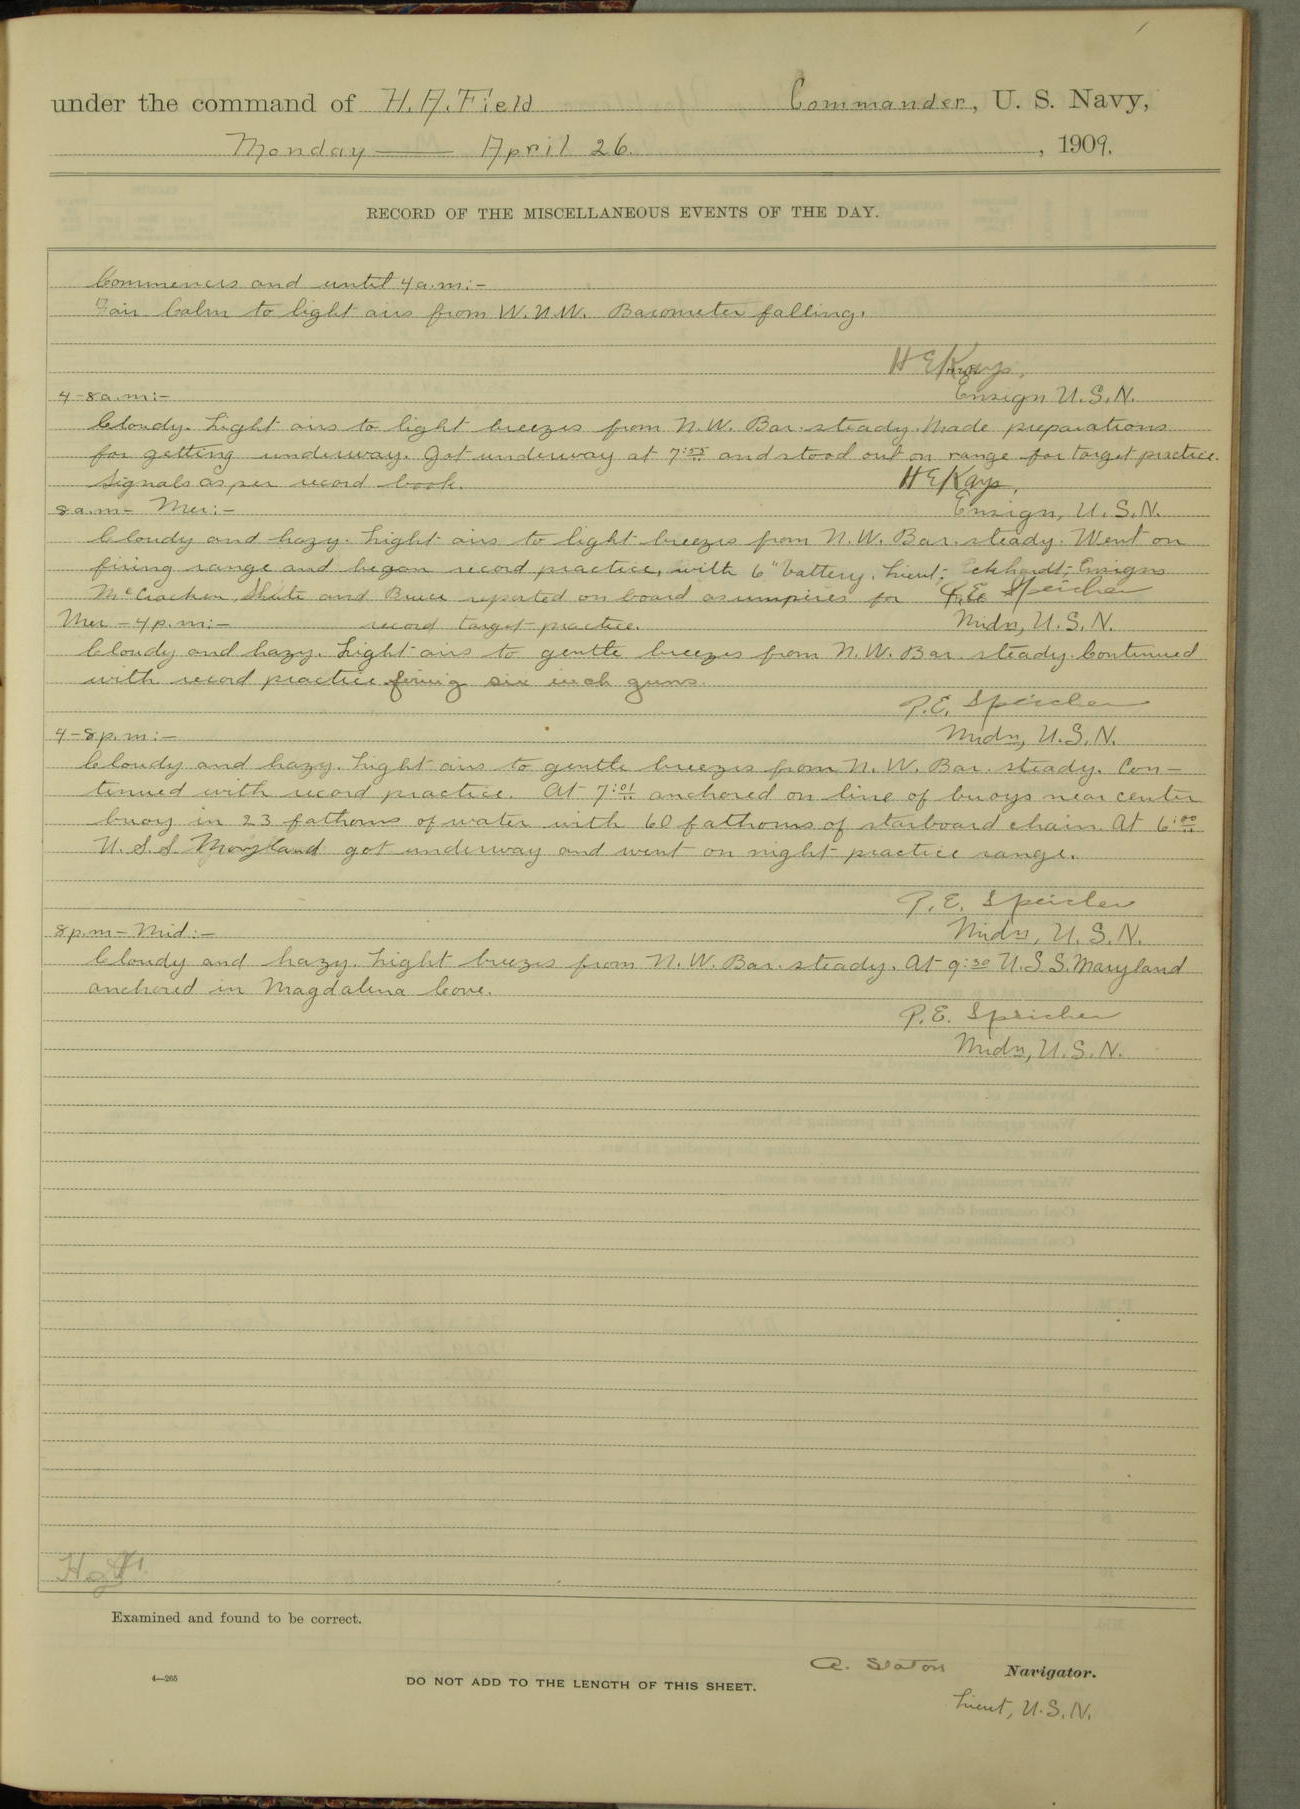 under the command of H. A. Field Commander, U. S. Navy,
Monday — April 26. , 1909.
RECORD OF THE MISCELLANEOUS EVENTS OF THE DAY.
Commences and until 4 a.m:-
Fair. Calm to light airs from W.N.W. Barometer falling.
H E Kays.
Ensign U.S.N.
4-8 a.m:-
Cloudy. Light airs to light breezes from N.W. Bar. steady. Made preparations
for getting underway. Got underway at 7:55 and stood out on range for target practice.
Signals as per record book.
H E Kays,
Ensign, U.S.N.
8 a.m- Mer:-
Cloudy and hazy. Light airs to light breezes from N.W. Bar. steady. Went on
firing range and began record practice, with 6" battery. Lieut. Ensigns
McCracken, and reported on board as umpires for
record target practice.
P.E. Speicher
Midn, U.S.N.
Mer - 4 p.m:-
Cloudy and hazy. Light airs to gentle breezes from N.W. Bar. steady. Continued
with record practice firing six inch guns.
P.E. Speicher
Midn, U.S.N.
4-8 p.m:-
Cloudy and hazy. Light airs to gentle breezes from N.W. Bar. steady. Con-
tinued with record practice. At 7:01 anchored on line of buoys near center
buoy in 23 fathoms of water with 60 fathoms of starboard chain. At 6:00
U.S.S. Maryland got underway and went on night practice range.
P.E. Speicher
Midn, U.S.N.
8 p.m- Mid:-
Cloudy and hazy. Light breezes from N.W. Bar. steady. At 9:30 U.S.S. Maryland
anchored in Magdalena Cove.
P.E. Speicher
Midn, U.S.N.
Examined and found to be correct.
A. Staton Navigator.
4—265
DO NOT ADD TO THE LENGTH OF THIS SHEET.
Lieut, U.S.N.